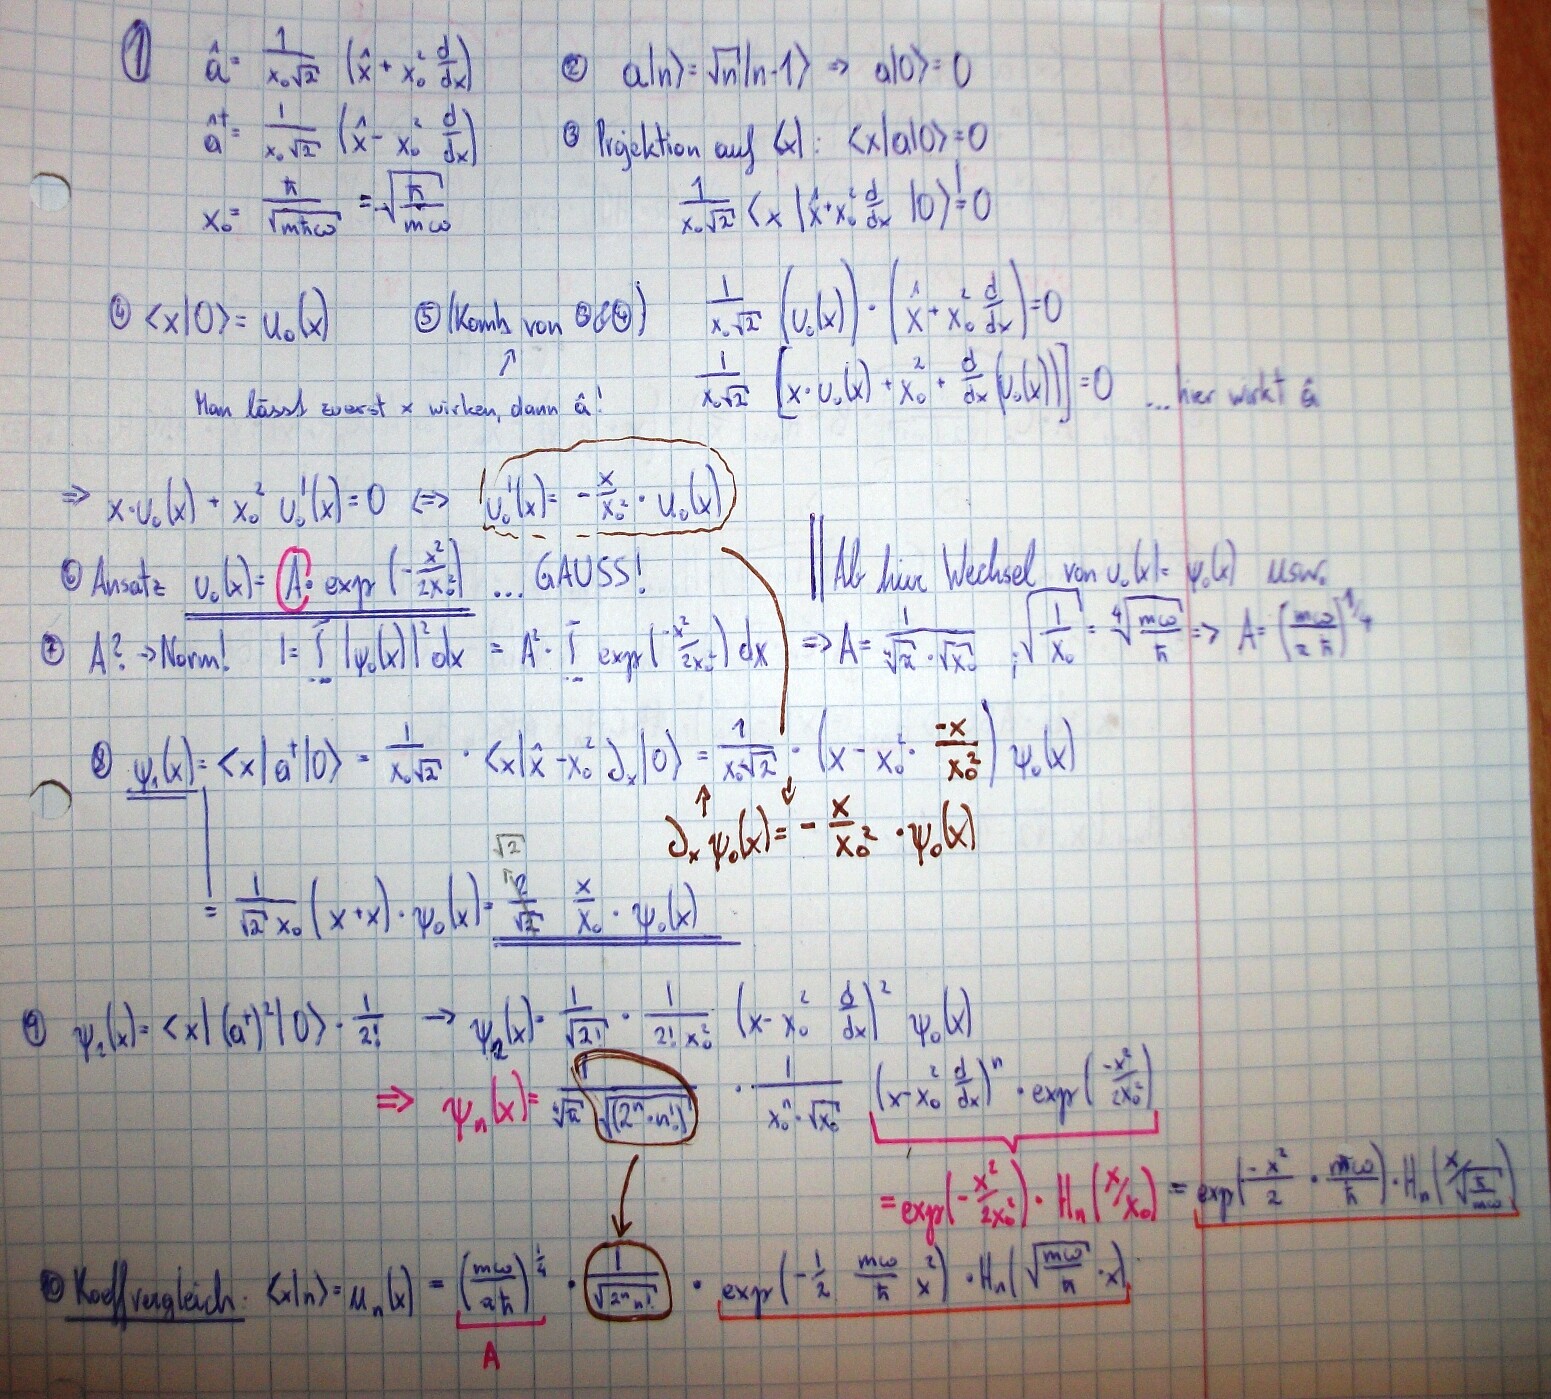 ① â = 1/(x₀√2) (x̂ + x₀² d/dx)   ② a|n⟩ = √n |n-1⟩ ⇒ a|0⟩ = 0
â† = 1/(x₀√2) (x̂ - x₀² d/dx)   ③ Projektion auf ⟨x|: ⟨x|a|0⟩ = 0
x₀ = ħ/√(mħω) = √(ħ/(mω))   1/(x₀√2) ⟨x|x̂ + x₀² d/dx|0⟩ =! 0
④ ⟨x|0⟩ = u₀(x)   ⑤ (Komb von ③&④)   1/(x₀√2) (u₀(x)) · (x̂ + x₀² d/dx) = 0
↑
Man lässt zuerst x wirken, dann â!   1/(x₀√2) [x·u₀(x) + x₀² + d/dx (u₀(x))] = 0 ...hier wirkt â
⇒ x·u₀(x) + x₀² u₀'(x) = 0 ⇔ u₀'(x) = - x/x₀² · u₀(x)
⑥ Ansatz u₀(x) = A · exp(-x²/2x₀²) ... GAUSS!   || Ab hier Wechsel von u₀(x) = ψ₀(x) usw.
⑦ A? → Norm! 1 = ∫ |ψ₀(x)|² dx = A² · ∫ exp(-x²/2x₀²) dx ⇒ A = 1/(⁴√π · √x₀) ; √(1/x₀) = ⁴√(mω/ħ) ⇒ A = (mω/πħ)^1/4
⑧ ψ₁(x) = ⟨x|a†|0⟩ = 1/(x₀√2) · ⟨x|x̂ - x₀² ∂ₓ|0⟩ = 1/(x₀√2) · (x - x₀² · -x/x₀²) ψ₀(x)
∂ₓ ψ₀(x) = - x/x₀² · ψ₀(x)
√2
= 1/(√2 x₀) (x+x) · ψ₀(x) = 2/√2 x/x₀ · ψ₀(x)
⑨ ψ₂(x) = ⟨x|(a†)²|0⟩ · 1/2! → ψ₂(x) = 1/√2! · 1/(2! x₀²) (x - x₀² d/dx)² ψ₀(x)
⇒ ψₙ(x) = 1/(⁴√π √(2ⁿ·n!)) · 1/(x₀ⁿ·√x₀) (x - x₀² d/dx)ⁿ · exp(-x²/2x₀²)
= exp(-x²/2x₀²) · Hₙ(x/x₀) = exp(-x²/2 · mω/ħ) · Hₙ(x/√(ħ/mω))
⑩ Koeffvergleich: ⟨x|n⟩ = uₙ(x) = (mω/πħ)^1/4 · 1/√(2ⁿn!) · exp(-1/2 mω/ħ x²) · Hₙ(√(mω/ħ) · x)
A